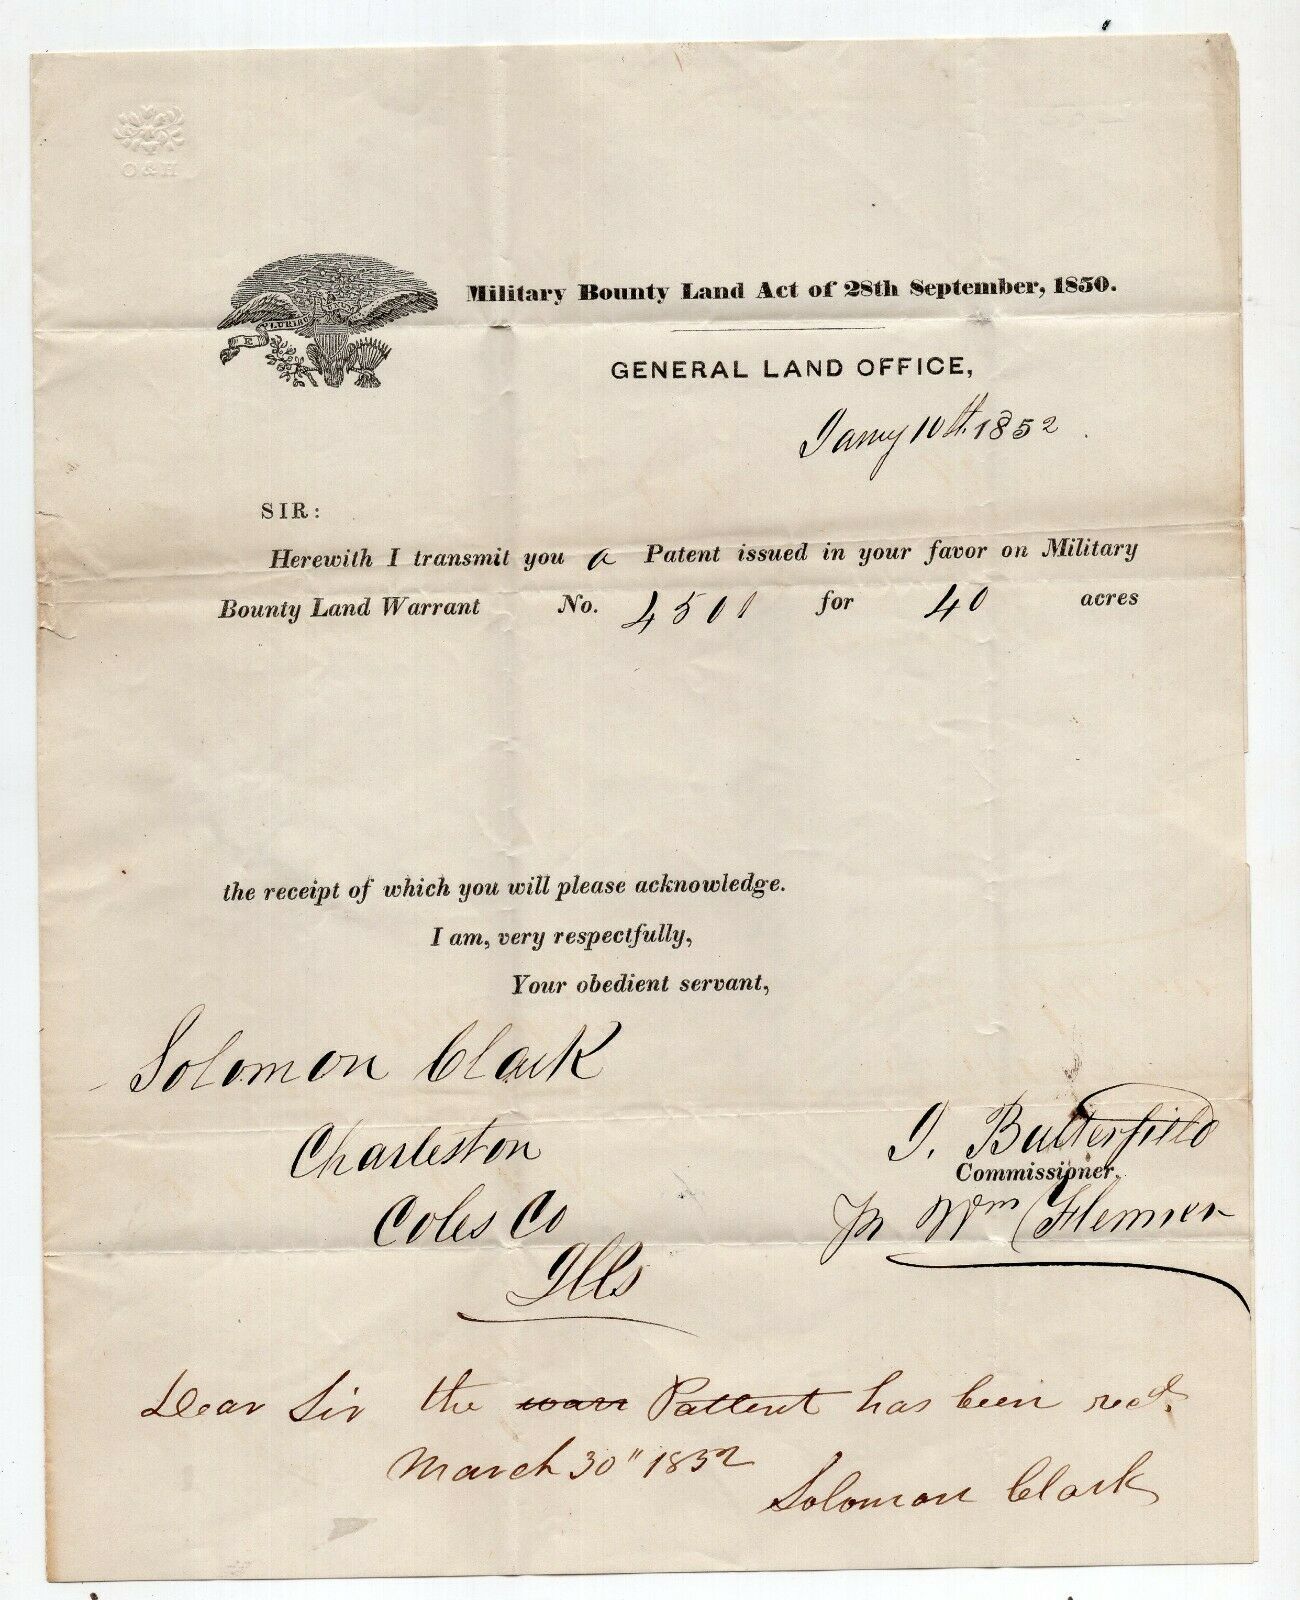 O & H
E PLURIBUS
Military Bounty Land Act of 28th September, 1850.
GENERAL LAND OFFICE,
Jany 10th. 1852
SIR:
Herewith I transmit you a Patent issued in your favor on Military
Bounty Land Warrant No. 4501 for 40 acres
the receipt of which you will please acknowledge.
I am, very respectfully,
Your obedient servant,
Solomon Clark
Charleston
Coles Co
Ills
J. Butterfield
Commissioner,
Wm Flenner
Dear Sir the warr Pattent has been recd.
March 30" 1852
Solomon Clark